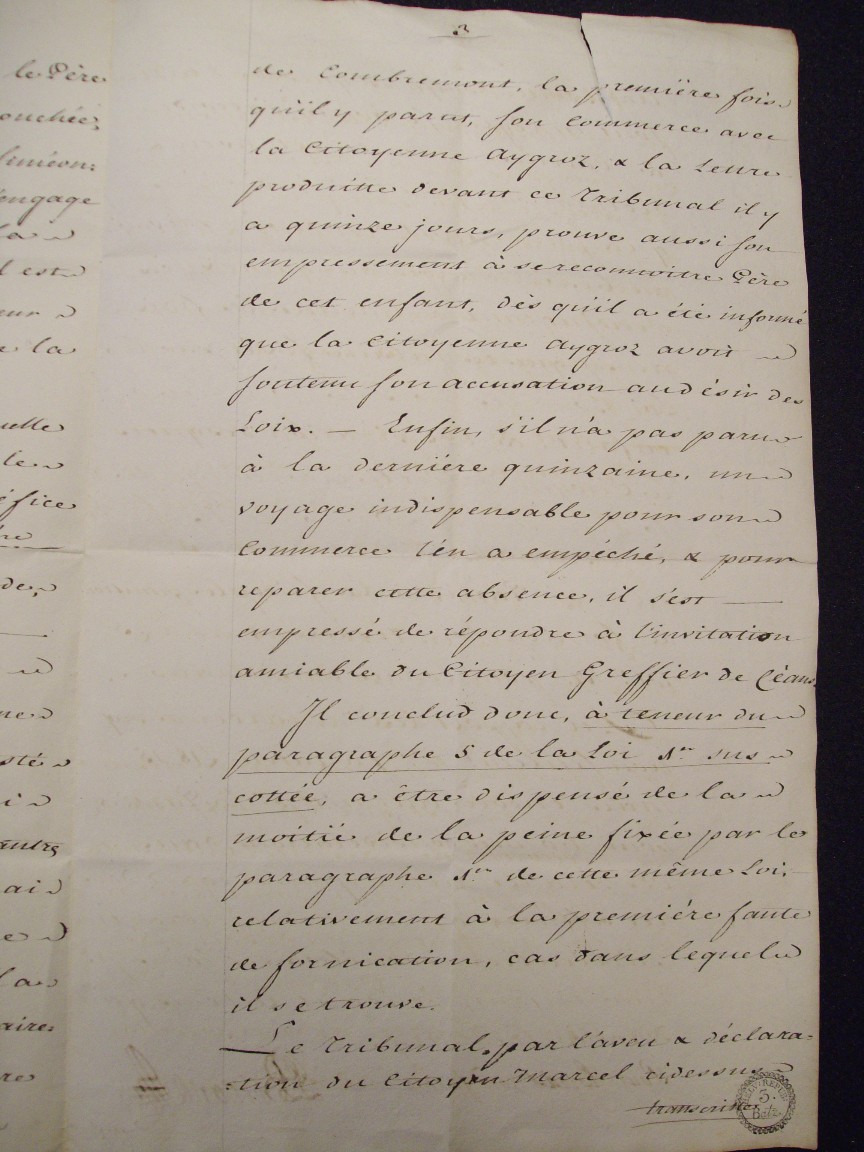 3
de Combremont, la premiére fois
qu'il y parut, son Commerce avec
la Citoyenne Aygroz, & la Lettre
produitte devant ce Tribunal il y
a quinze jours, prouve aussi son
empressement à se reconnoitre Pére
de cet enfant, dès qu'il a été informé
que la Citoyenne Aygroz avoit
soutenu son accusation au désir des
Loix. — Enfin, s'il n'a pas paru
à la derniére quinzaine, un
voyage indispensable pour son
Commerce l'en a empéché, & pour
reparer cette absence, il s'est —
empressé de répondre à l'invitation
amiable du Citoyen Greffier de Céans.
Il conclud donc, à teneur du
paragraphe 5 de la Loi 1re sus
cottée, a être dispensé de la
moitié de la peine fixée par le
paragraphe 1er de cette même Loi,
relativement à la premiére faute
de fornication, cas dans lequel
il se trouve.
Le Tribunal, par l'aveu & déclara-
-tion du Citoyen Marcel cidessus
transcritte
le Père
ouchée,
engage
la
l est
eur
e la
uelle
le
éfice
re
de,
ne
sté
i
autre
ai
e
la
aire
re
HELV: REPUB:
5
Batz.